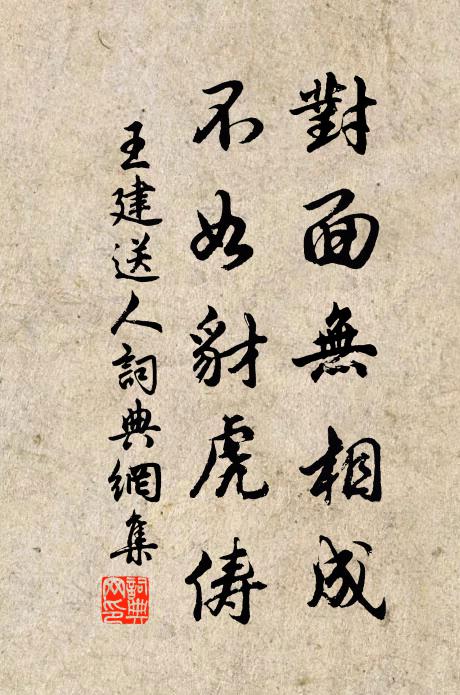 對面無相成
不如豺虎儔
王建送人詞典網集
詞典網印